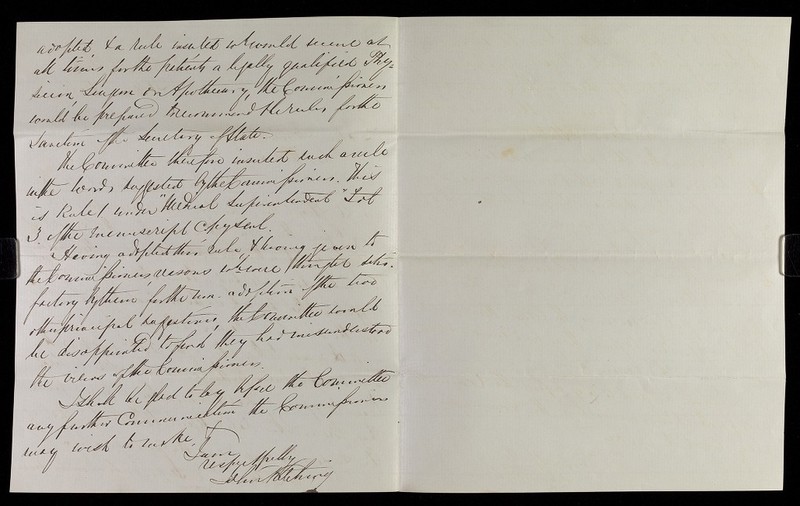 adopted & a rule inserted wh would secure at
all times for the patients a legally qualified Phy=
sician, Surgeon or Apothecary, the Commissioners
would be prepared to recommend the rules for the
Sanction of the Secretary of State.
The Committee therefore inserted such a rule
in the words suggested by the Commissioners. This
is Rule 1 under "Medical Superintendent"
3. of the manuscript copy sent.
Having adopted this rule, & having given to
the Commissioners reasons wh were thought satis-
factory by them for the non-adoption of the two
other principal suggestions, the Committee would
be disappointed to find they had misunderstood
the views of the Commissioners.
I shall be glad to lay before the Committee
any further Communication the Commissioners
may wish to make.
I am
respectfully
John